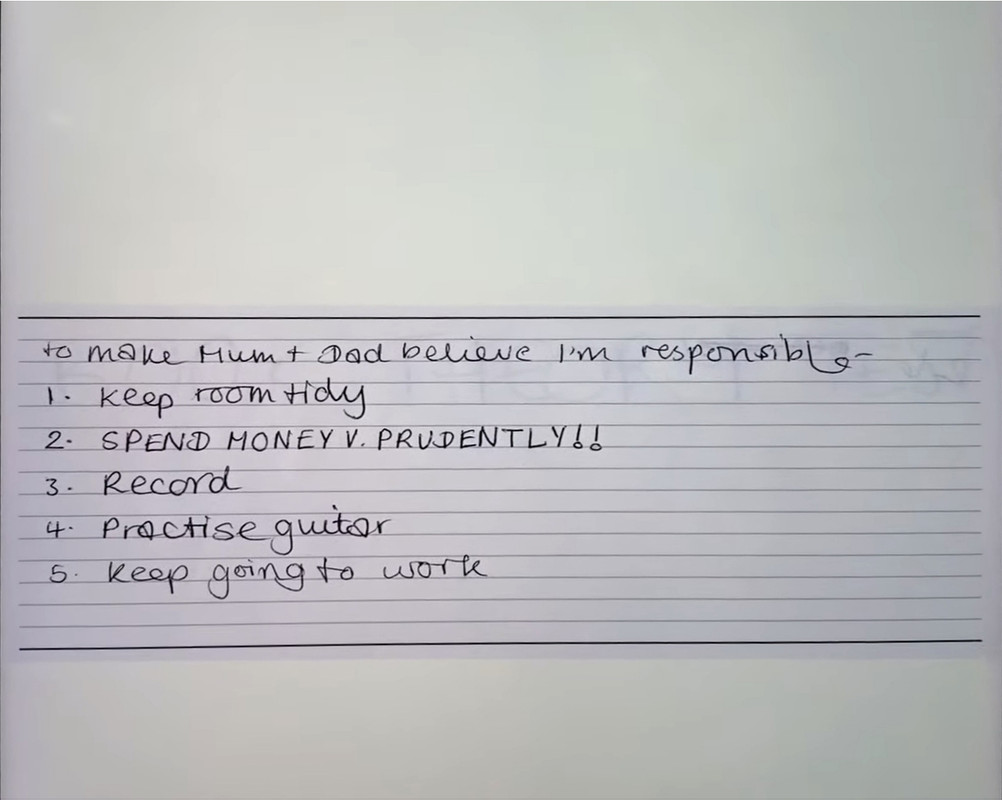 to make Mum + Dad believe I'm responsible-
1. Keep room tidy
2. SPEND MONEY V. PRUDENTLY!!
3. Record
4. Practise guitar
5. Keep going to work